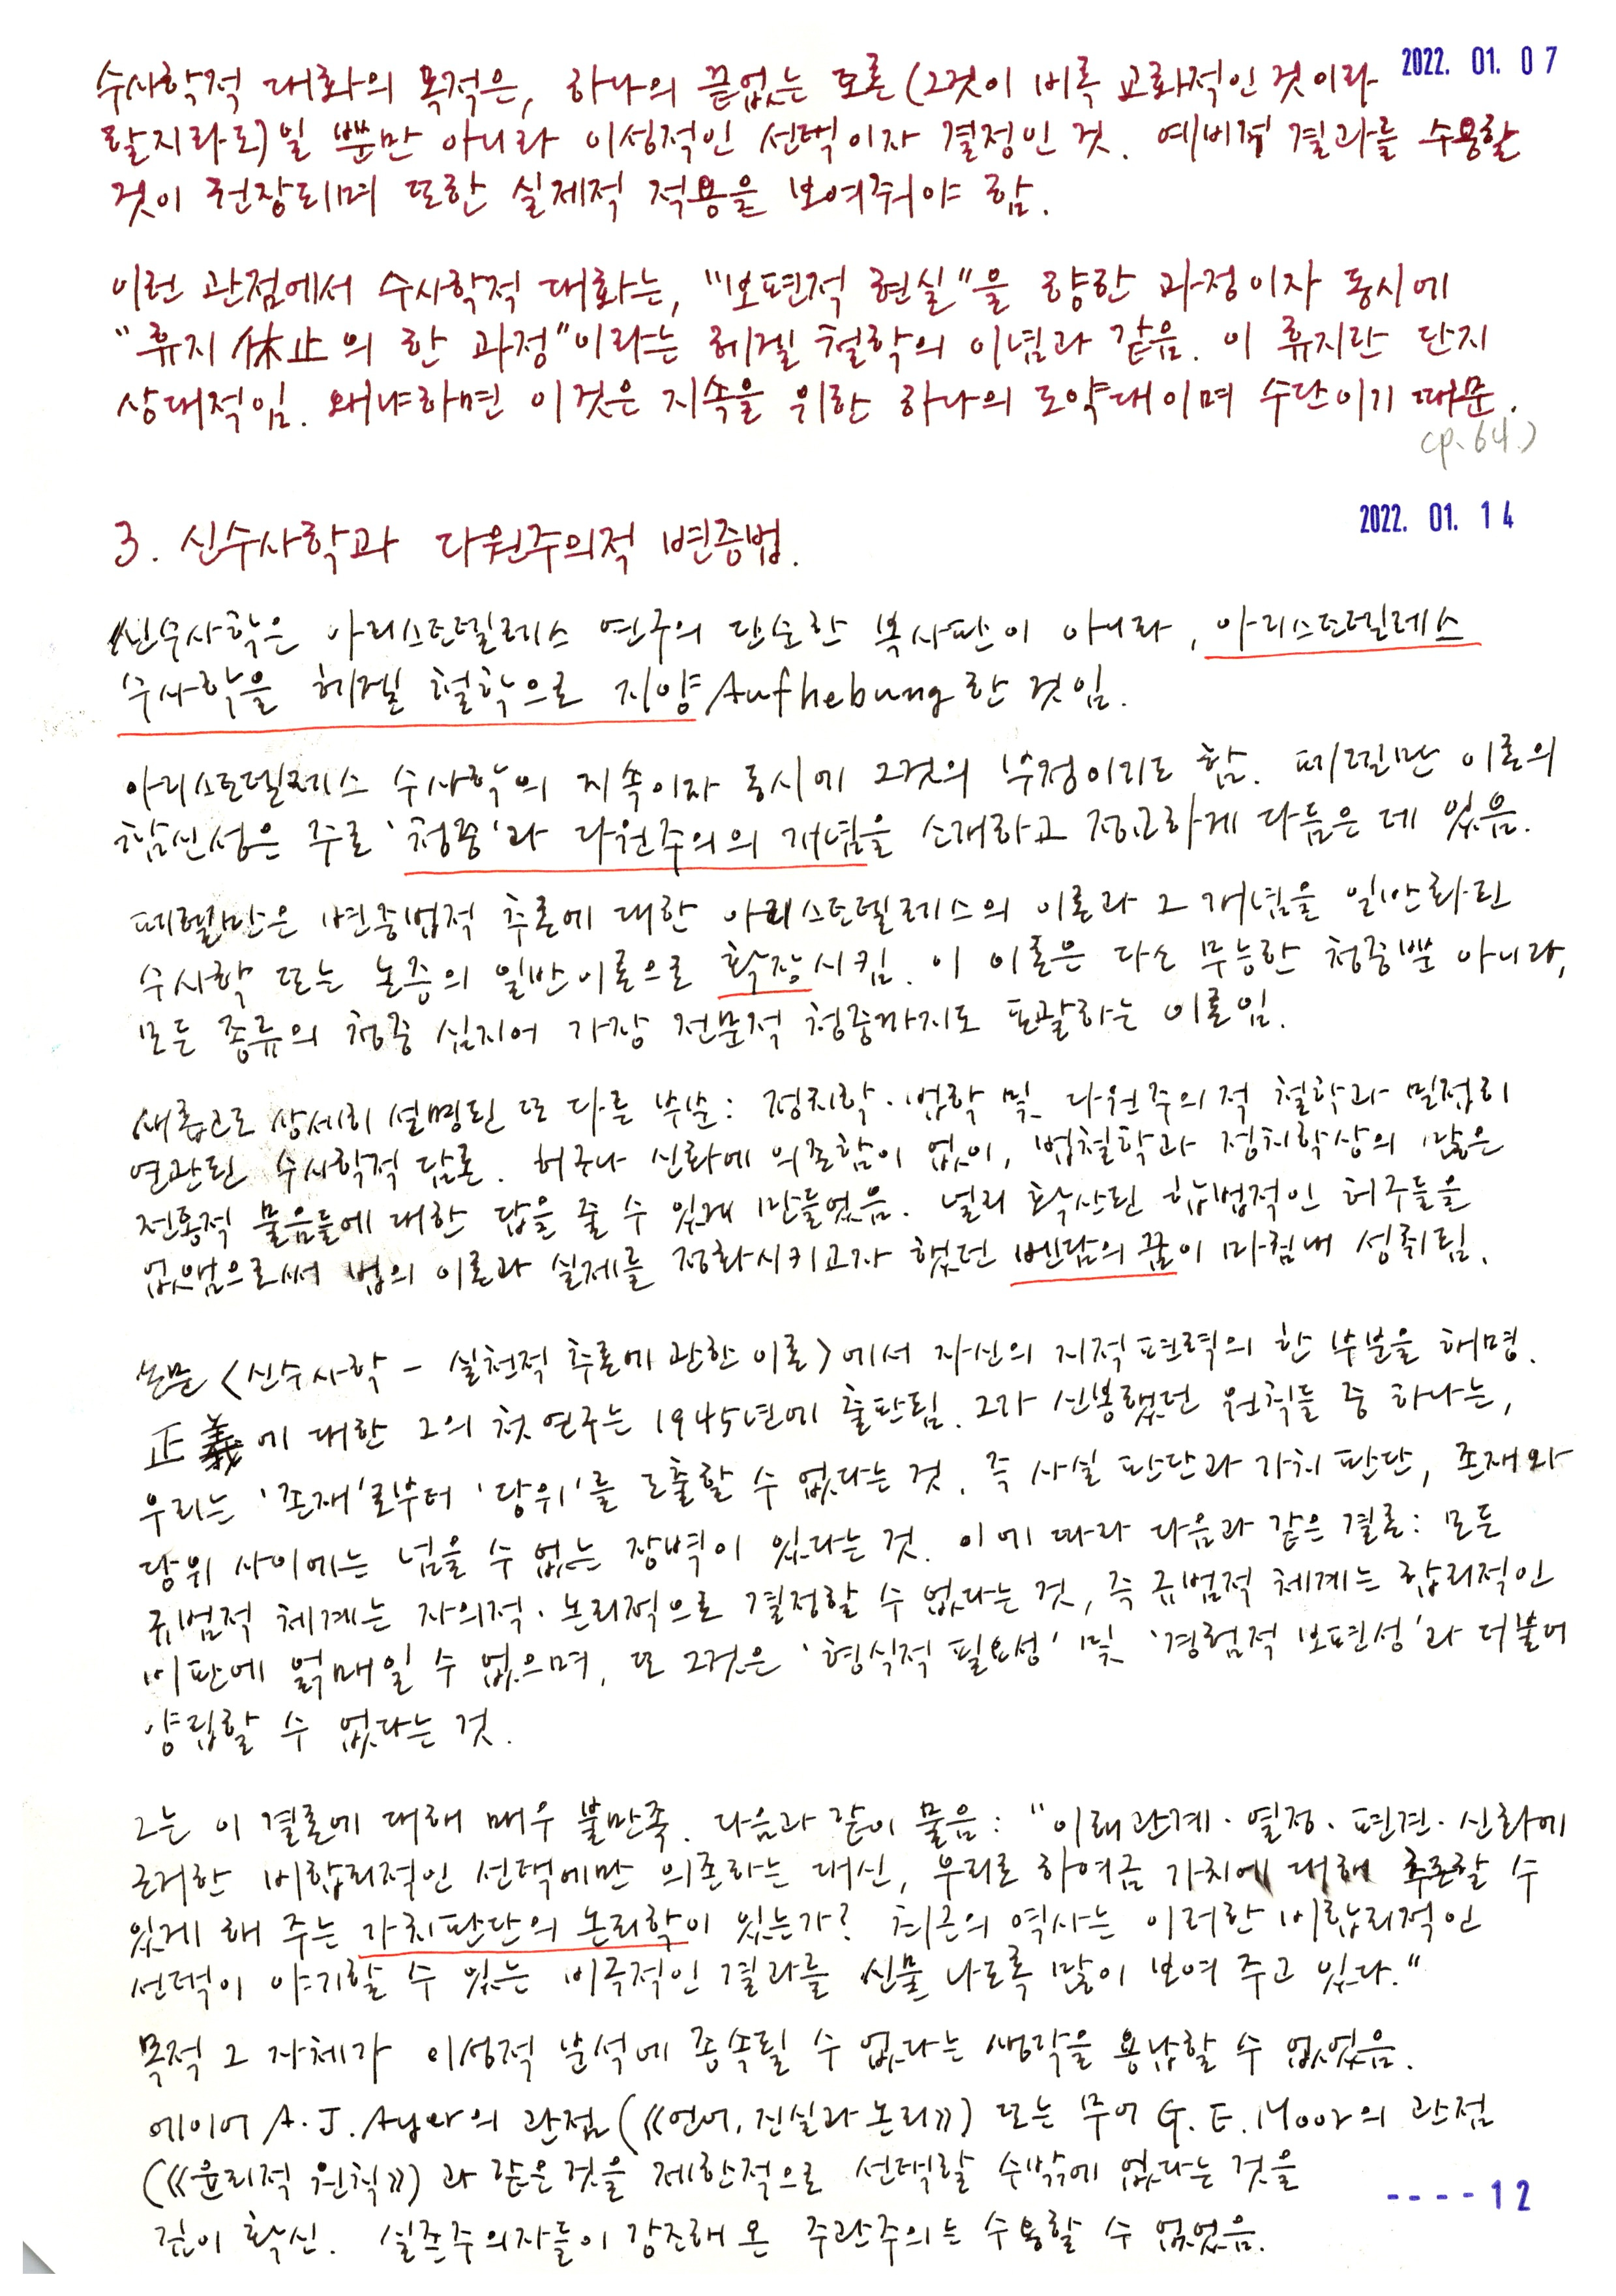 2022. 01. 07
수사학적 대화의 목적은, 하나의 끝없는 토론(그것이 비록 교화적인 것이라
할지라도)일 뿐만 아니라 이성적인 선택이자 결정인 것. 예비적 결과를 수용할
것이 권장되며 또한 실제적 적용을 보여줘야 함.
이런 관점에서 수사학적 대화는, "보편적 현실"을 향한 과정이자 동시에
"휴지休止의 한 과정"이라는 헤겔 철학의 이념과 같음. 이 휴지란 단지
상대적임. 왜냐하면 이것은 지속을 위한 하나의 도약대이며 수단이기 때문.
(p.64.)
2022. 01. 14
3. 신수사학과 다원주의적 변증법.
신수사학은 아리스토텔레스 연구의 단순한 복사판이 아니라, 아리스토텔레스
수사학을 헤겔 철학으로 지양Aufhebung한 것임.
아리스토텔레스 수사학의 지속이자 동시에 그것의 부정이기도 함. 페렐만 이론의
참신성은 주로 '청중'과 다원주의의 개념을 소개하고 정교하게 다듬은 데 있음.
페렐만은 변증법적 추론에 대한 아리스토텔레스의 이론과 그 개념을 일반화된
수사학 또는 논증의 일반이론으로 확장시킴. 이 이론은 다소 무능한 청중뿐 아니라,
모든 종류의 청중 심지어 가장 전문적 청중까지도 포괄하는 이론임.
새롭고도 상세히 설명된 또 다른 부분: 정치학·법학 및 다원주의적 철학과 밀접히
연관된 수사학적 담론. 허구나 신화에 의존함이 없이, 법철학과 정치학상의 많은
전통적 물음들에 대한 답을 줄 수 있게 만들었음. 널리 확산된 합법적인 허구들을
없앰으로써 법의 이론과 실제를 정화시키고자 했던 벤담의 꿈이 마침내 성취됨.
논문 <신수사학 - 실천적 추론에 관한 이론>에서 자신의 지적 편력의 한 부분을 해명.
正義에 대한 그의 첫 연구는 1945년에 출판됨. 그가 신봉했던 원칙들 중 하나는,
우리는 '존재'로부터 '당위'를 도출할 수 없다는 것. 즉 사실 판단과 가치 판단, 존재와
당위 사이에는 넘을 수 없는 장벽이 있다는 것. 이에 따라 다음과 같은 결론: 모든
규범적 체계는 자의적·논리적으로 결정할 수 없다는 것, 즉 규범적 체계는 합리적인
비판에 얽매일 수 없으며, 또 그것은 '형식적 필요성' 및 '경험적 보편성'과 더불어
양립할 수 없다는 것.
그는 이 결론에 대해 매우 불만족. 다음과 같이 물음: "이해관계·열정·편견·신화에
근거한 비합리적인 선택에만 의존하는 대신, 우리로 하여금 가치에 대해 추론할 수
있게 해 주는 가치판단의 논리학이 있는가? 최근의 역사는 이러한 비합리적인
선택이 야기할 수 있는 비극적인 결과를 신물 나도록 많이 보여 주고 있다."
목적 그 자체가 이성적 분석에 종속될 수 없다는 생각을 용납할 수 없었음.
에이어 A.J.Ayer의 관점(《언어, 진실과 논리》) 또는 무어 G.E.Moor의 관점
(《윤리적 원칙》)과 같은 것을 제한적으로 선택할 수밖에 없다는 것을
깊이 확신. 실존주의자들이 강조해 온 주관주의는 수용할 수 없었음.
----12